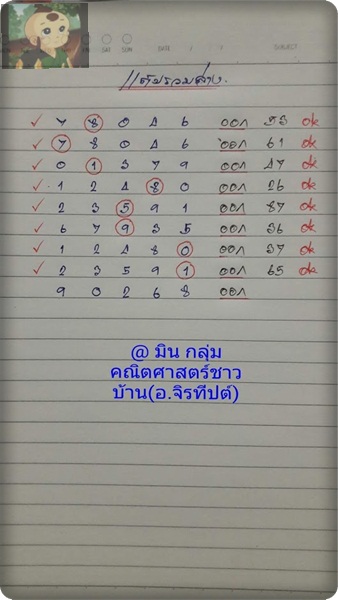 SAT SUN DATE / / SUBJECT
แต้มรวมล่าง.
✓ 7 8 0 4 6 ออก 53 ok
✓ 7 8 0 4 6 ออก 61 ok
✓ 0 1 3 7 9 ออก 47 ok
✓ 1 2 4 8 0 ออก 26 ok
✓ 2 3 5 9 1 ออก 87 ok
✓ 6 7 9 3 5 ออก 36 ok
✓ 1 2 4 8 0 ออก 37 ok
✓ 2 3 5 9 1 ออก 65 ok
9 0 2 6 8 ออก
@ มิน กลุ่ม
คณิตศาสตร์ชาว
บ้าน(อ.จิรทีปต์)